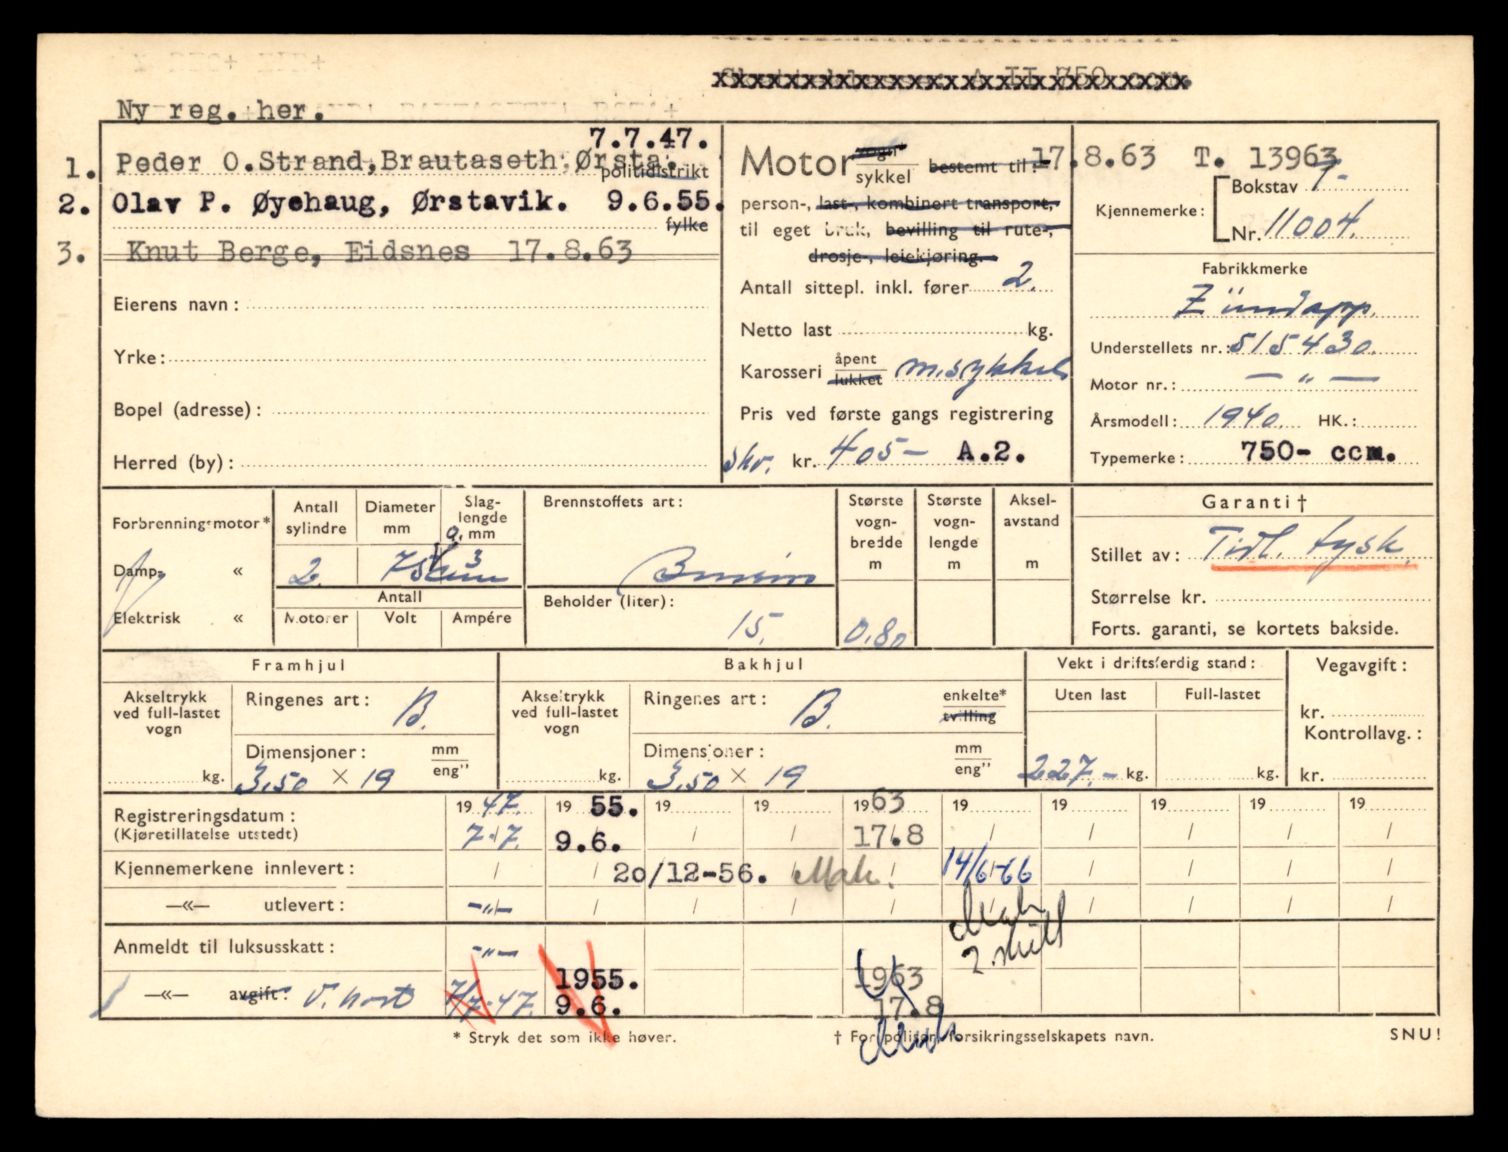 Ny reg. her.
7.7.47.
1. Peder O.Strand,Brautaseth Ørsta.
politidistrikt
2. Olav P. Øyehaug, Ørstavik. 9.6.55.
fylke
3. Knut Berge, Eidsnes 17.8.63
Eierens navn:
Yrke:
Bopel (adresse):
Herred (by):
Motor vogn* sykkel bestemt til:
person-, last-, kombinert transport,
til eget bruk, bevilling til rute-,
drosje-, leiekjøring.
Antall sittepl. inkl. fører 2.
Netto last kg.
Karosseri åpent lukket m.sykkel
Pris ved første gangs registrering
Skv. kr. 405- A.2.
17.8.63 T. 13963
Kjennemerke: Bokstav T-
Nr. 11004.
Fabrikkmerke
Zündapp.
Understellets nr.: 515430.
Motor nr.: — " —
Årsmodell: 1940. HK.:
Typemerke: 750- ccm.
Forbrenningsmotor*
Damp- «
Elektrisk «
Antall sylindre
2.
Diameter mm
Slaglengde mm
Antall
Motorer Volt Ampére
Brennstoffets art:
Bensin
Beholder (liter):
15.
Største vognbredde m
0.80
Største vognlengde m
Akselavstand m
Garanti†
Stillet av: Tidl. tysk.
Størrelse kr.
Forts. garanti, se kortets bakside.
Framhjul
Akseltrykk ved full-lastet vogn
kg.
Ringenes art: B.
Dimensjoner: mm eng"
3.50 × 19
Bakhjul
Akseltrykk ved full-lastet vogn
kg.
Ringenes art: B.
enkelte* tvilling
Dimensjoner: mm eng"
3.50 × 19
Vekt i driftsferdig stand:
Uten last Full-lastet
227.- kg. kg.
Vegavgift:
kr.
Kontrollavg.:
kr.
Registreringsdatum: 1947. 19 55. 19 19 1963 19 19 19 19 19
(Kjøretillatelse utstedt) 7.7. 9.6. / / 17.8 / / / / /
Kjennemerkene innlevert: / / 20/12-56. Mak. 14/6-66
—«— utlevert: -"-
Mak
2 skilt
Anmeldt til luksusskatt: -"-
1955. 1963
—«— avgift: v. kort 7/7-47. 9.6. 17.8
* Stryk det som ikke høver.
† For politiet: forsikringsselskapets navn.
SNU!